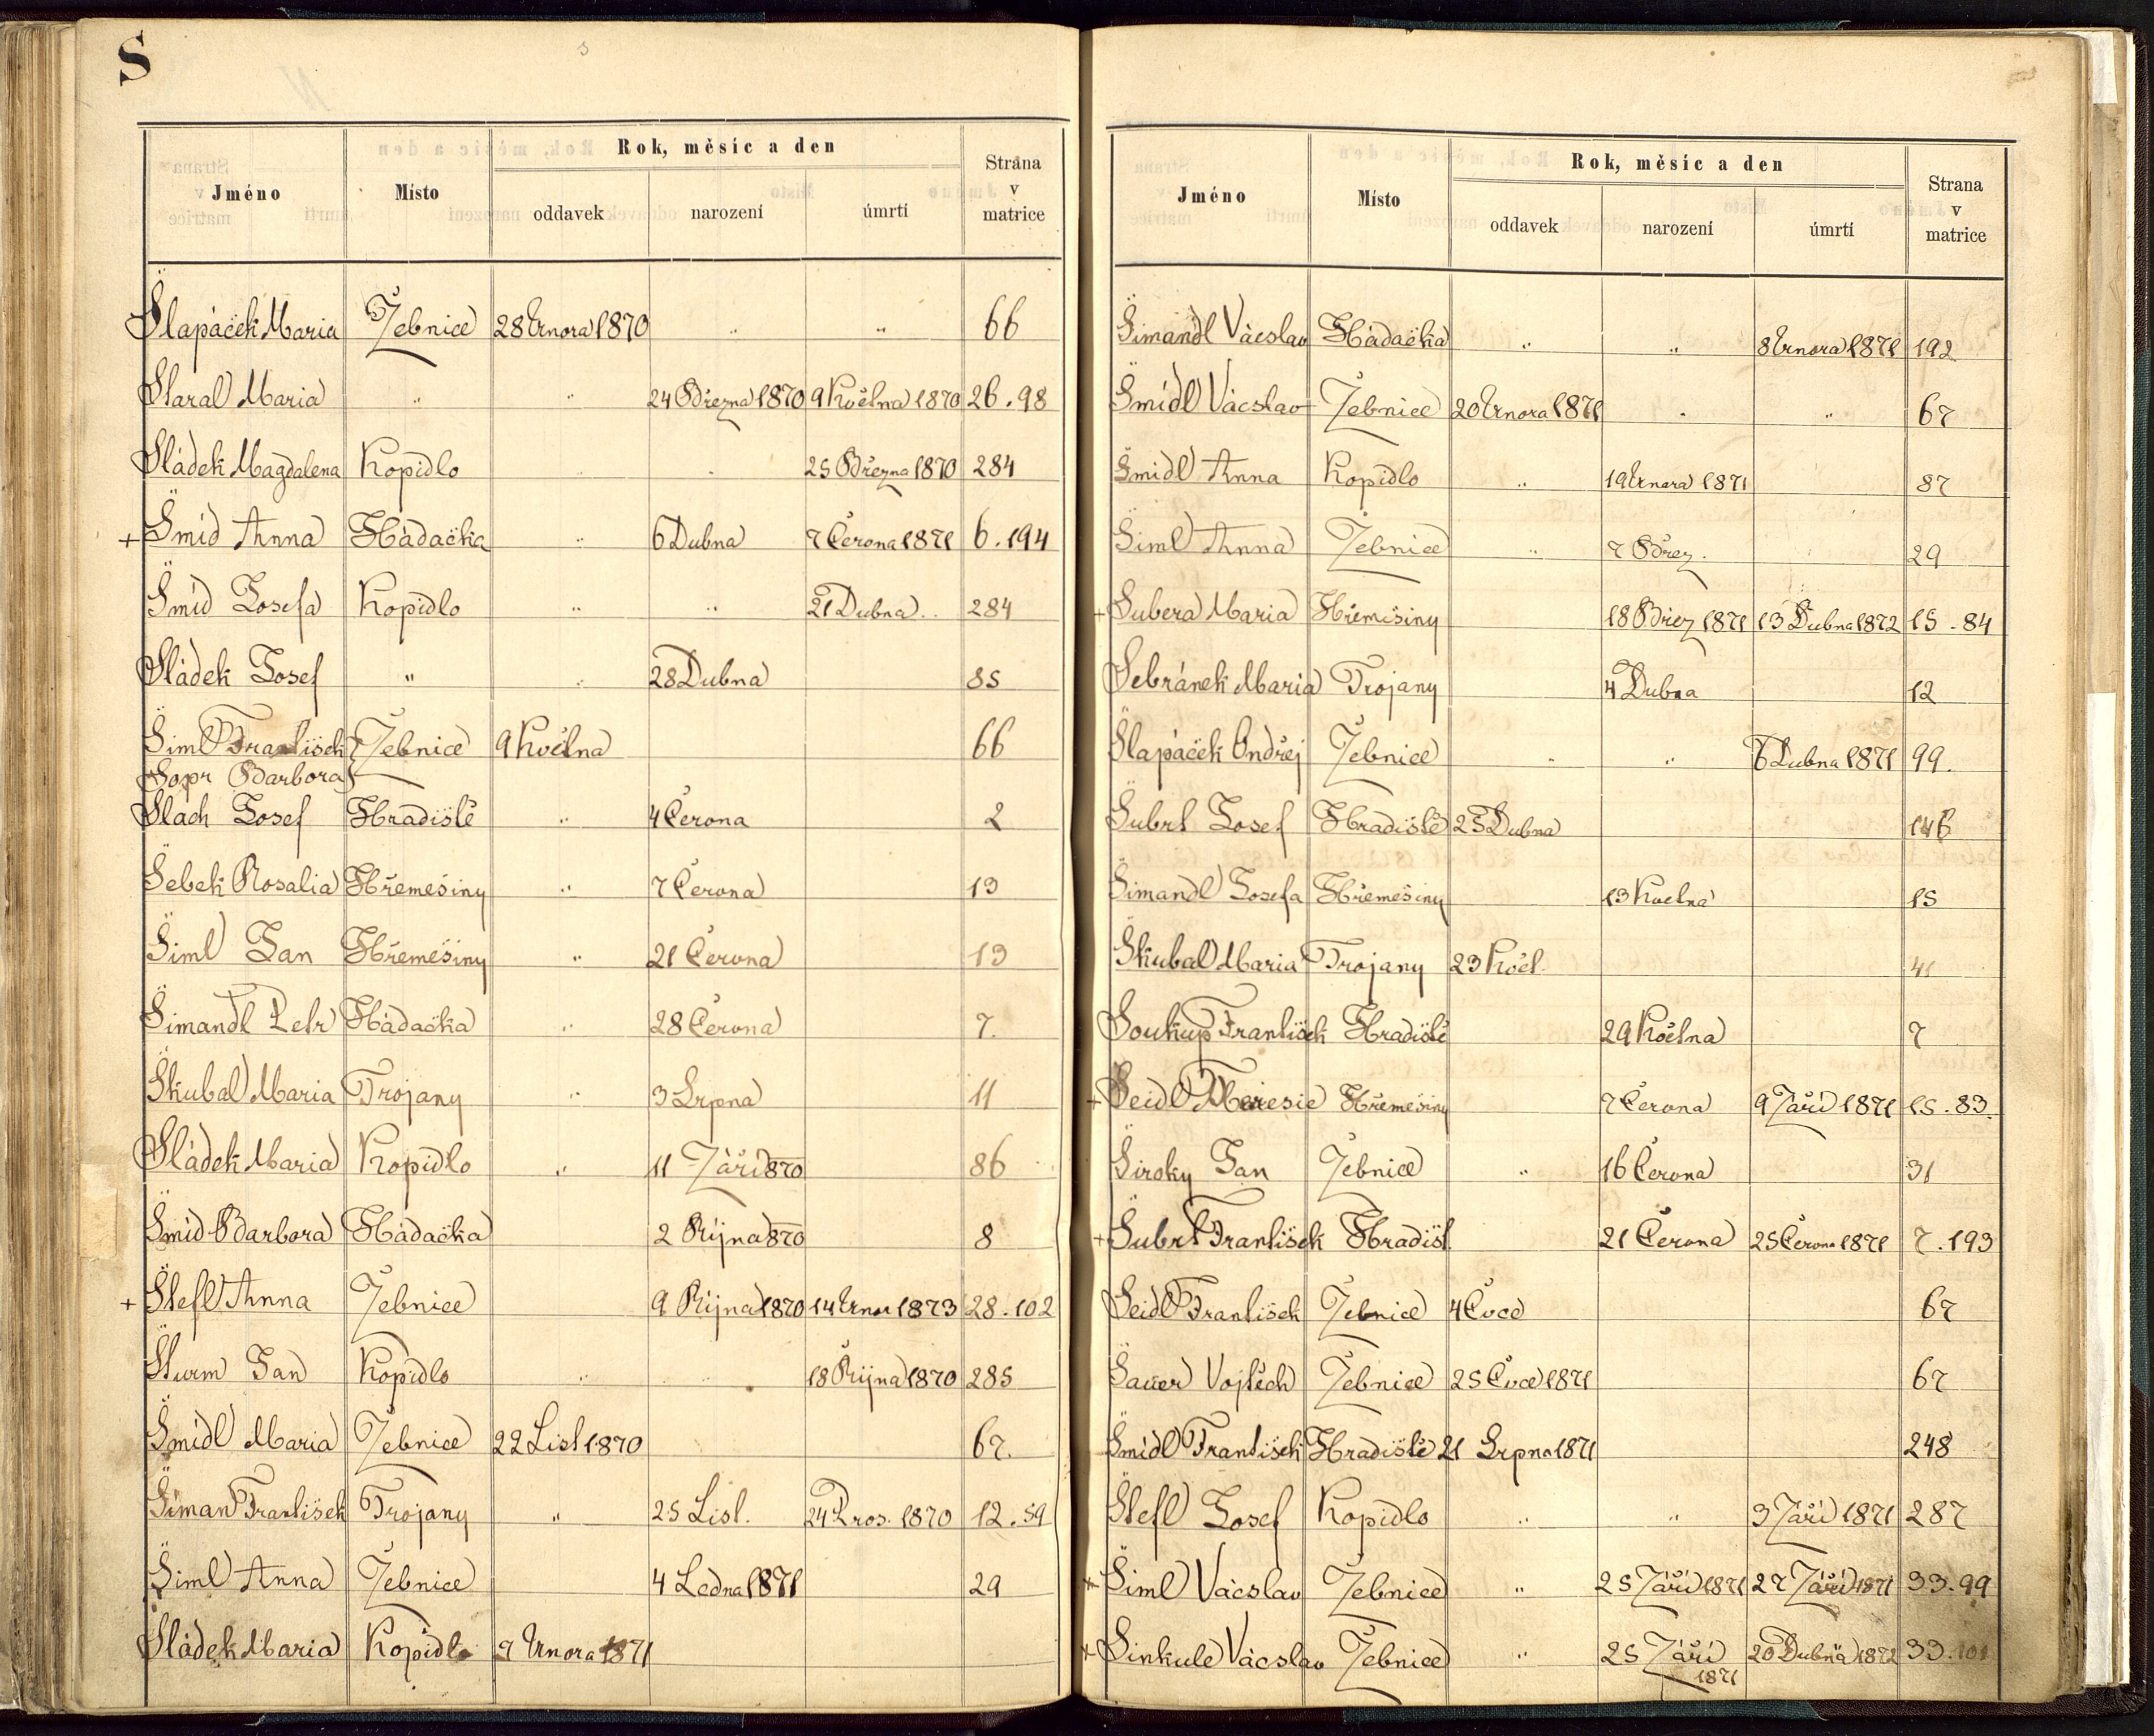 S
Rok, měsíc a den
Jméno Místo oddavek narození úmrtí Strana v matrice
Šlapáček Maria Žebnice 28 Února 1870 " " 66
Staral Maria " " 24 Března 1870 9 Května 1870 26.98
Sládek Magdalena Kopidlo " " 25 Března 1870 284
+ Šmíd Anna Hádačka " 6 Dubna 7 Června 1871 6.194
Šmíd Josefa Kopidlo " " 21 Dubna " 284
Sládek Josef " " 28 Dubna 85
Šiml František Žebnice 9 Května 66
Sopr Barbora
Šlach Josef Hradiště " 4 Června 2
Šebek Rosalia Hřemešiny " 7 Června 13
Šiml Jan Hřemešiny " 21 Června 13
Šimandl Petr Hádačka " 28 Června 7.
Škubal Maria Trojany " 3 Srpna 11
Sládek Maria Kopidlo " 11 Září 870 86
Šmíd Barbora Hádačka 2 Října 870 8
+ Štefl Anna Žebnice 9 Října 1870 14 Únor 1873 28.102
Šturm Jan Kopidlo " 18 Října 1870 285
Šmídl Maria Žebnice 22 List 1870 67.
Šiman František Trojany " 25 List. 24 Pros. 1870 12.59
Šiml Anna Žebnice 4 Ledna 1871 29
Sládek Maria Kopidlo 7 Února 1871
Rok, měsíc a den
Jméno Místo oddavek narození úmrtí Strana v matrice
Šimandl Vácslav Hádačka " " 8 Února 1871 192
Šmídl Vácslav Žebnice 20 Února 1871 " " 67
Šmidl Anna Kopidlo " 19 Února 1871 87
Šiml Anna Žebnice " 7 Břez. 29
+ Šubera Maria Hřemišiny 18 Břez 1871 13 Dubna 1872 15.84
Sebránek Maria Trojany 4 Dubna 12
Šlapáček Ondřej Žebnice " " 6 Dubna 1871 99.
Šubrt Josef Hradiště 25 Dubna 146
Šimandl Josefa Hřemešiny 13 Května 15
Škubal Maria Trojany 23 Květ. 41
Soukup František Hradiště 29 Května 7
+ Seidl Theresie Hřemešiny 7 Června 9 Září 1871 15.83.
Široky Jan Žebnice " 16 Června 31
+ Šubrt František Hradišt. 21 Června 25 Června 1871 7.193
Seidl František Žebnice 4 Čvce 67
Šauer Vojtěch Žebnice 25 Čvce 1871 67
Šmídl František Hradiště 21 Srpna 1871 248
Štefl Josef Kopidlo " " 3 Září 1871 287
+ Šiml Vácslav Žebnice " 25 Září 1871 27 Září 1871 33.99
+ Šinkule Vácslav Žebnice " 25 Září 1871 20 Dubna 1872 33.101